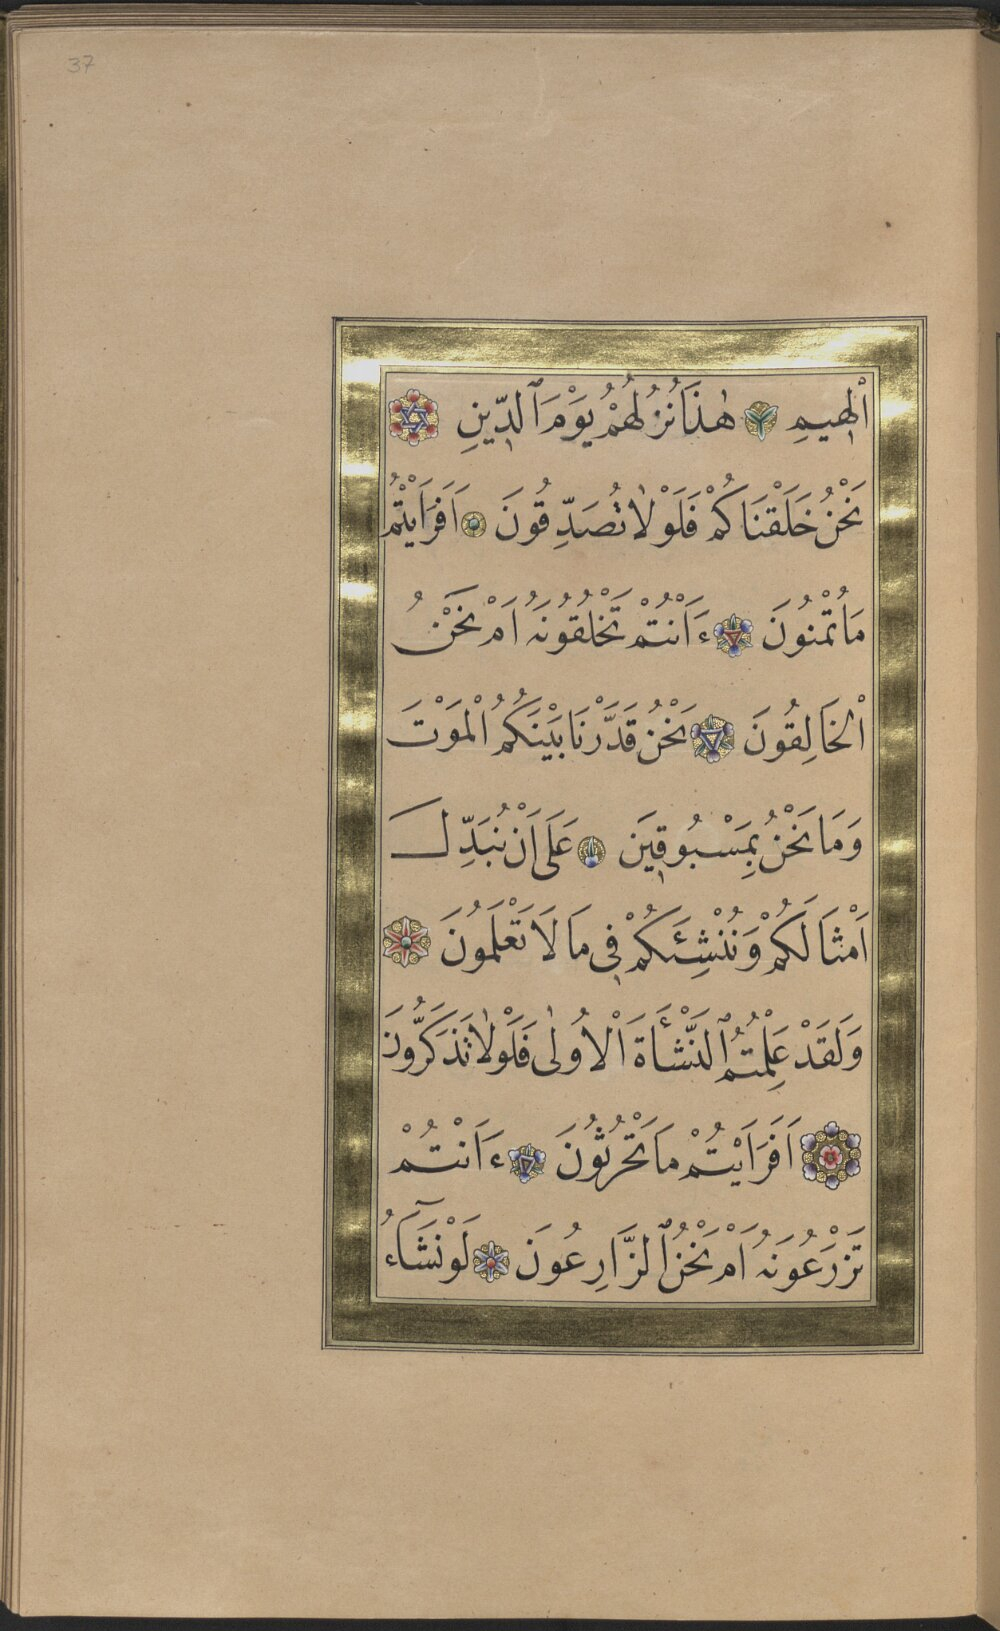 37
اْلهِيمِ هٰذَا نُزُلُهُمْ يَوْمَ ٱلدِّينِ
نَحْنُ خَلَقْنَاكُمْ فَلَوْلَا تُصَدِّقُونَ اَفَرَاَيْتُمْ
مَا تُمْنُونَ ءَاَنْتُمْ تَخْلُقُونَهُ اَمْ نَحْنُ
اْلخَالِقُونَ نَحْنُ قَدَّرْنَا بَيْنَكُمُ اْلمَوْتَ
وَمَا نَحْنُ بِمَسْبُوقِينَ عَلَى اَنْ نُبَدِّلَ
اَمْثَالَكُمْ وَنُنْشِئَكُمْ فِى مَا لَا تَعْلَمُونَ
وَلَقَدْ عَلِمْتُمُ ٱلنَّشْأَةَ اْلاُولٰى فَلَوْلَا تَذَكَّرُونَ
اَفَرَاَيْتُمْ مَا تَحْرُثُونَ ءَاَنْتُمْ
تَزْرَعُونَهُ اَمْ نَحْنُ ٱلزَّارِعُونَ لَوْ نَشَآءُ